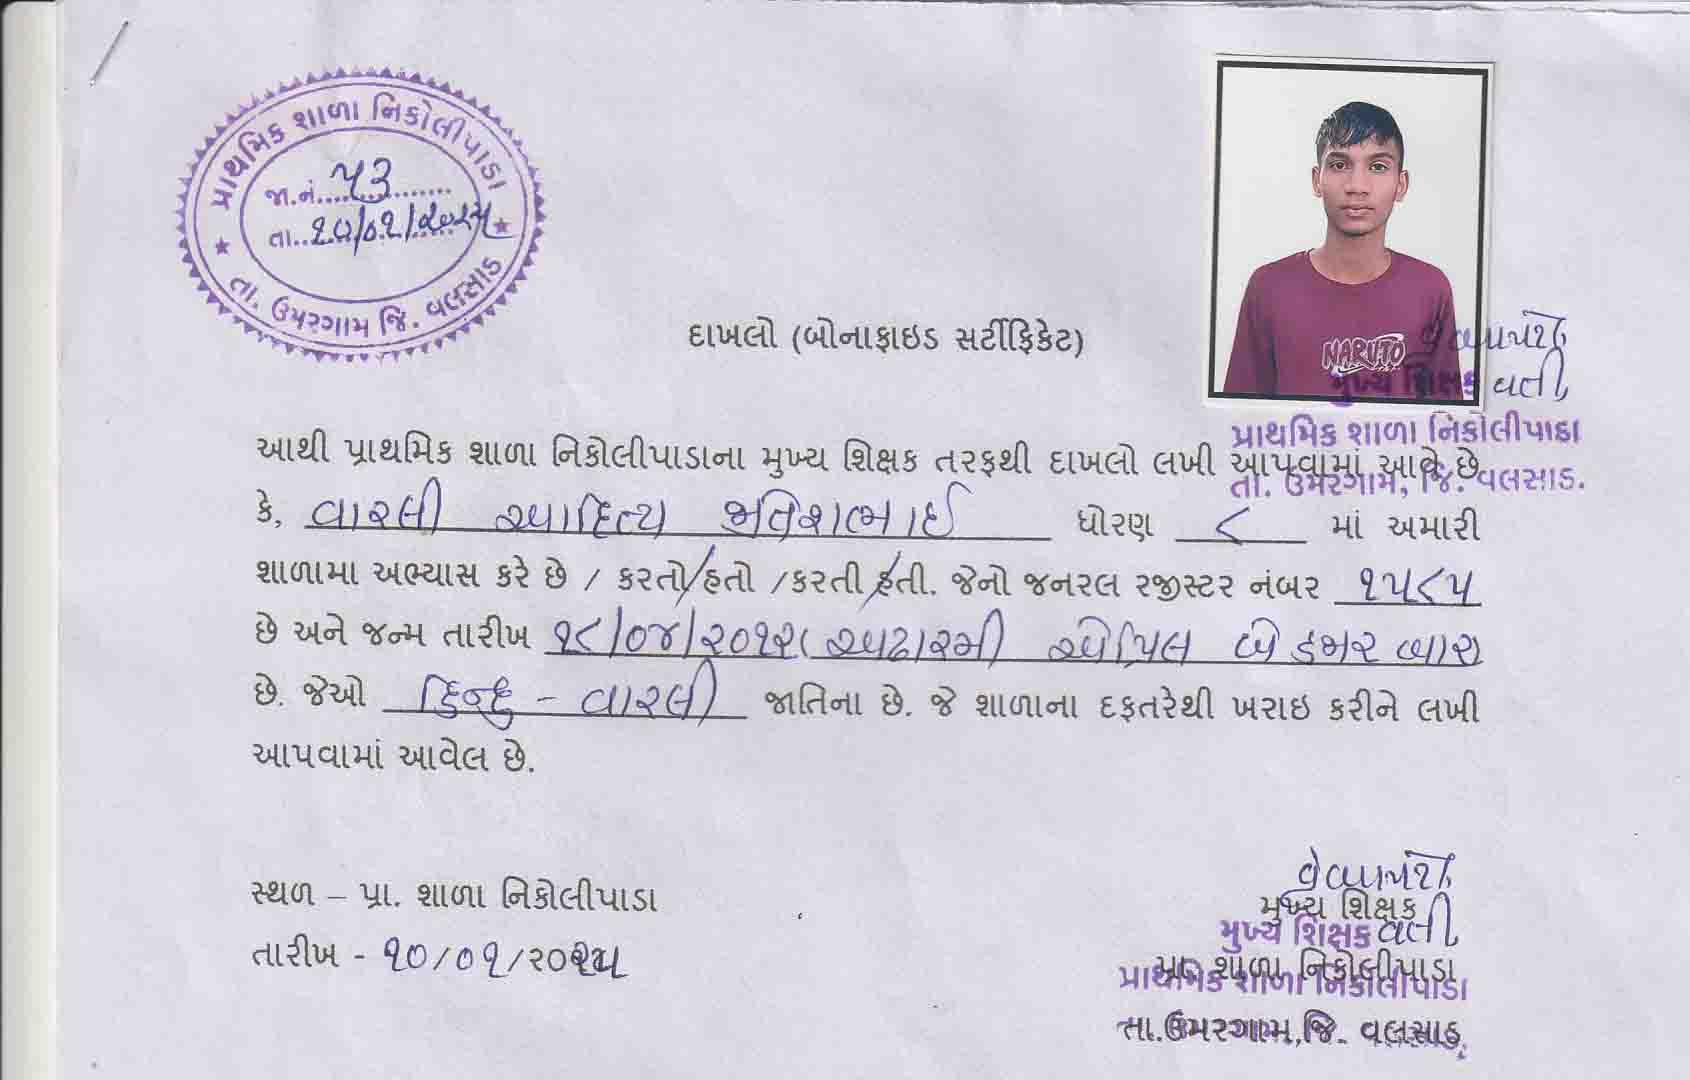 પ્રાથમિક શાળા નિકોલીપાડા
જા.નં....૫૩........
તા..૧૦/૦૧/૨૦૨૫
તા. ઉમરગામ જિ. વલસાડ
NARUTO
દાખલો (બોનાફાઇડ સર્ટીફિકેટ)
મુખ્ય શિક્ષક વતી
પ્રાથમિક શાળા નિકોલીપાડા
તા. ઉમરગામ, જિ. વલસાડ.
આથી પ્રાથમિક શાળા નિકોલીપાડાના મુખ્ય શિક્ષક તરફથી દાખલો લખી આપવામાં આવે છે
કે, વારલી આદિત્ય જીતેશભાઈ ધોરણ ૮ માં અમારી
શાળામા અભ્યાસ કરે છે / કરતો/હતો /કરતી હતી. જેનો જનરલ રજીસ્ટર નંબર ૧૫૮૫
છે અને જન્મ તારીખ ૧૮/૦૪/૨૦૧૨( અઢારમી એપ્રિલ બે હજાર બાર
છે. જેઓ હિન્દુ - વારલી જાતિના છે. જે શાળાના દફતરેથી ખરાઇ કરીને લખી
આપવામાં આવેલ છે.
સ્થળ – પ્રા. શાળા નિકોલીપાડા
તારીખ - ૧૦/૦૧/૨૦૨૫
મુખ્ય શિક્ષક
મુખ્ય શિક્ષક વતી
પ્રા. શાળા નિકોલીપાડા
પ્રાથમિક શાળા નિકોલીપાડા
તા.ઉમરગામ,જિ. વલસાડ.